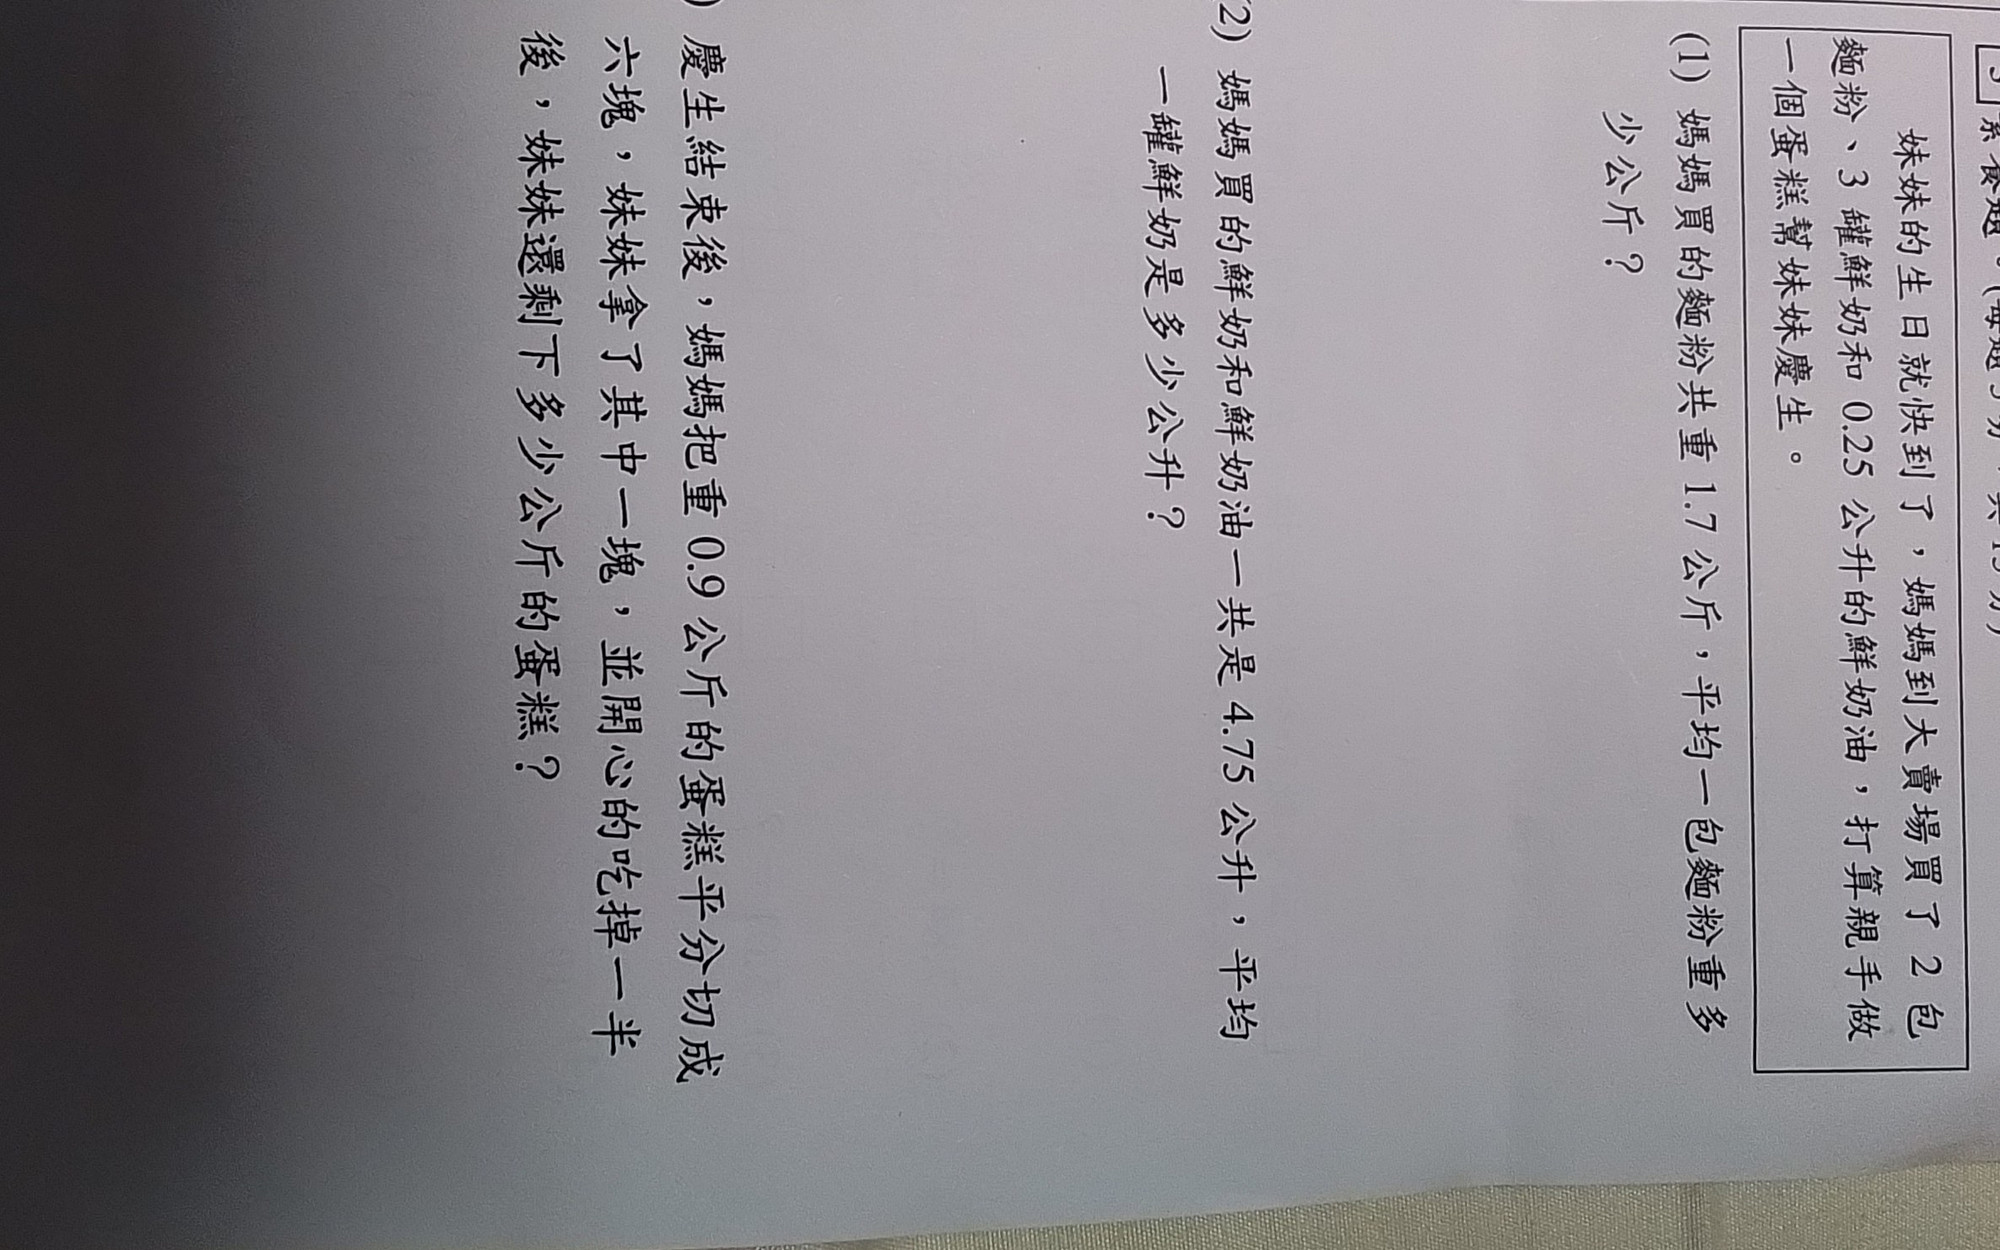 素養題。(每題5分，共15分)
妹妹的生日就快到了，媽媽到大賣場買了 2 包
麵粉、3 罐鮮奶和 0.25 公升的鮮奶油，打算親手做
一個蛋糕幫妹妹慶生。
(1) 媽媽買的麵粉共重 1.7 公斤，平均一包麵粉重多
少公斤？
2) 媽媽買的鮮奶和鮮奶油一共是 4.75 公升，平均
一罐鮮奶是多少公升？
) 慶生結束後，媽媽把重 0.9 公斤的蛋糕平分切成
六塊，妹妹拿了其中一塊，並開心的吃掉一半
後，妹妹還剩下多少公斤的蛋糕？